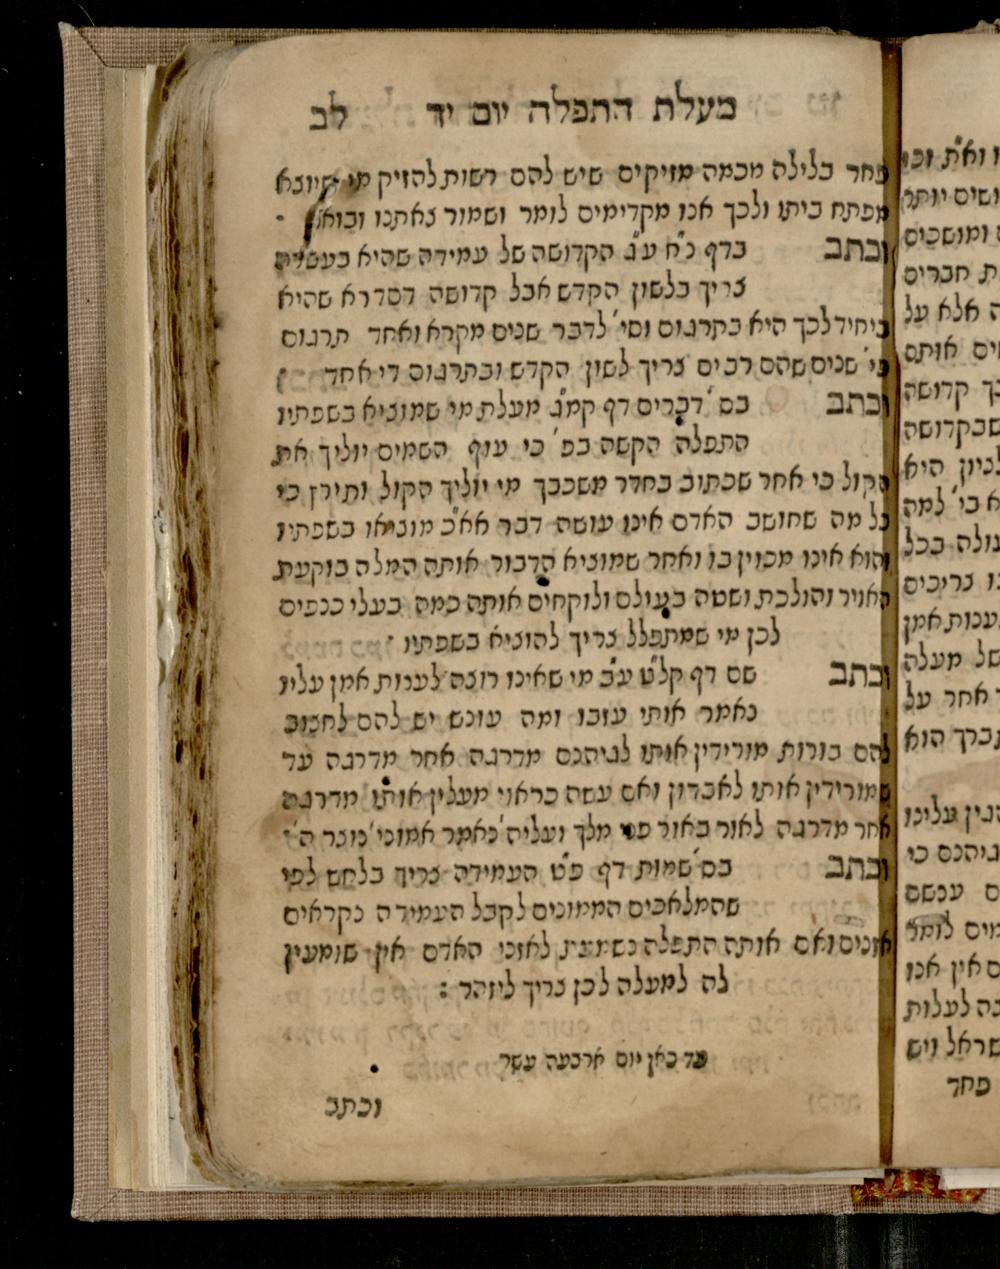 מעלת התפלה יום יד לב
פחד בלילה מכמה מזיקים שיש להם רשות להזיק מי שיוצא
מפתח ביתו ולכך אנו מקדימים לומר ושמור צאתנו ובואנו
וכתב בדף כ״ח ע״ג הקדושה של עמידה שהיא בעשרה
צריך בלשון הקדש אבל קדושה דסדרא שהיא
ביחיד לכך היא בתרגום וסי׳ לדבר שנים מקרא ואחד תרגום
פי׳ שנים שהם רבים צריך לשון הקדש ובתרגום די אחד :
וכתב בס׳ דברים דף קמ״ג מעלת מי שמוציא בשפתיו
התפלה הקשה בפ׳ כי עוף השמים יוליך את
הקול כי אחר שכתוב בחדר משכבך מי יוליך הקול ותירץ כי
כל מה שחושב האדם אינו עושה דבר אא״כ מוציאו בשפתיו
והוא אינו מכוין בו ואחר שמוציא הדבור אותה המלה בוקעת
האויר והולכת ושטה בעולם ולוקחים אותה כמה בעלי כנפים
לכן מי שמתפלל צריך להוציא בשפתיו :
וכתב שם דף קל״ט ע״ב מי שאינו רוצה לענות אמן עליו
נאמר אותי עזבו ומה עונש יש להם לחצוב
להם בורות מורידין אותו לגיהנם מדרגה אחר מדרגה עד
שמורידין אותו לאבדון ואם עשה כראוי מעלין אותו מדרגה
אחר מדרגה לאור באור פני מלך ועליה׳ נאמר אמוני׳ נוצר ה׳ :
וכתב בס׳ שמות דף פ״ט העמידה צריך בלחש לפי
שהמלאכים הממונים לקבל העמידה נקראים
אזנים ואם אותה התפלה נשמעת לאזני האדם אין שומעין
לה למעלה לכן צריך ליזהר :
עד כאן יום ארבעה עשר
וכתב